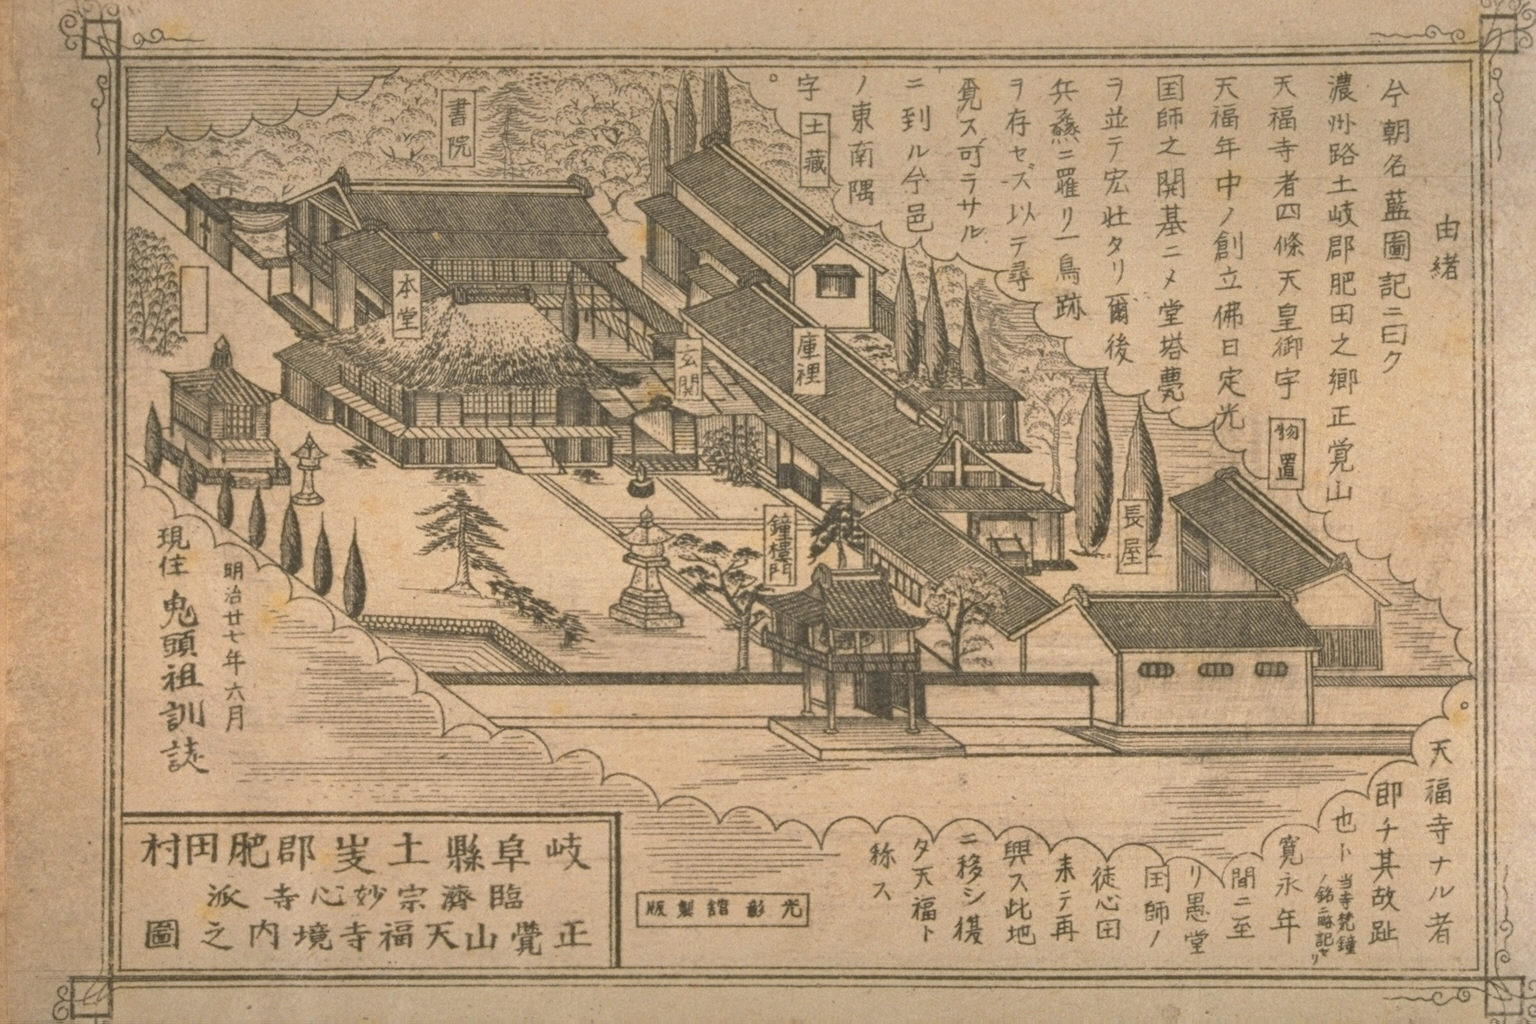 由緒
今朝名藍圖記ニ曰ク
濃州路土岐郡肥田之鄉正覚山
天福寺者四條天皇御宇
天福年中ノ創立佛日定光
囯師之開基ニメ堂塔甍
ヲ並テ宏壮タリ爾後
兵燹ニ罹リ一鳥跡
ヲ存セズ以テ尋
覓スヿ可ラサル
ニ到ル今邑
ノ東南隅
字
。
天福寺ナル者
即チ其故趾
也ト
当寺梵鐘
ノ銘ニ略記セリ
寛永年
間ニ至
リ愚堂
囯師ノ
徒心田
来テ再
興ス此地
ニ移シ復
タ天福ト
称ス
土藏
書院
本堂
玄関
庫裡
物置
長屋
鐘樓門
明治廿七年六月
現住 兔頭祖訓誌
光彰舘製版
岐阜縣土岐郡肥田村
臨濟宗妙心寺派
正覺山天福寺境内之圖